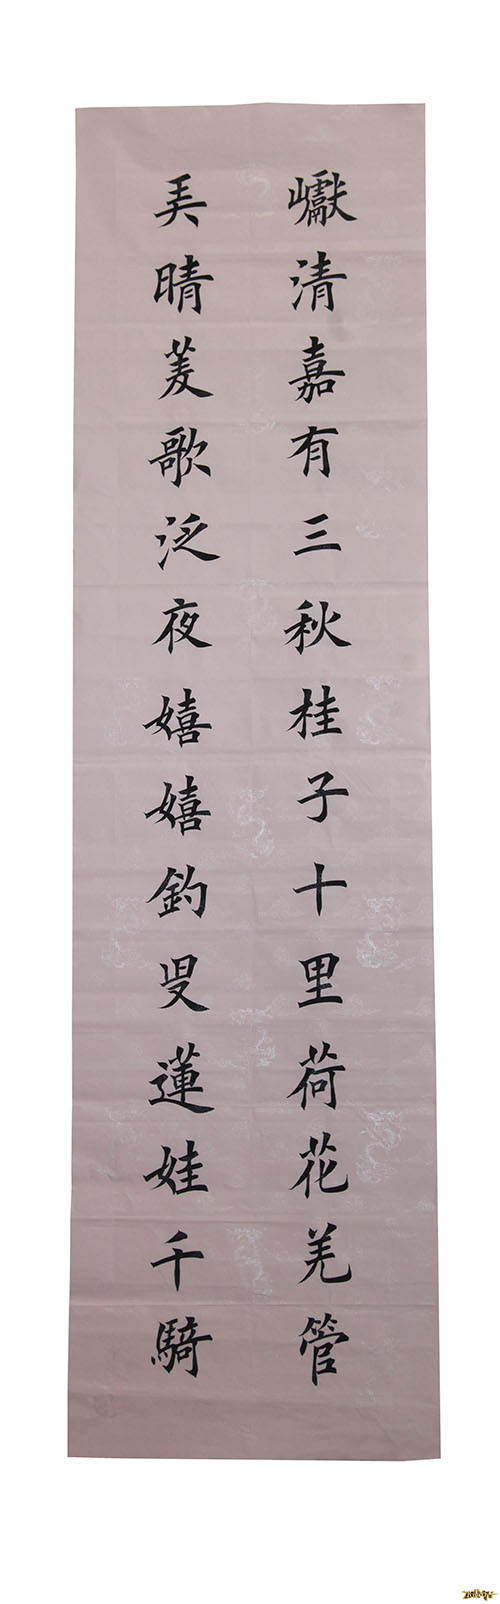 巘清嘉有三秋桂子十里荷花羌管
弄晴菱歌泛夜嬉嬉釣叟蓮娃千騎